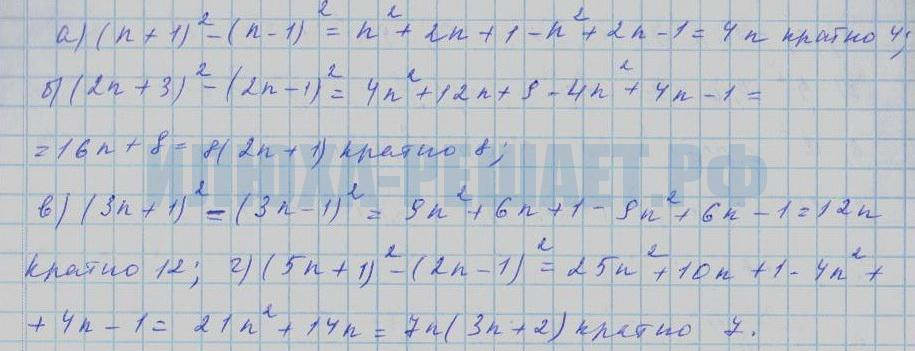 а) (n + 1)² - (n - 1)² = n² + 2n + 1 - n² + 2n - 1 = 4n кратно 4;
б) (2n + 3)² - (2n - 1)² = 4n² + 12n + 9 - 4n² + 4n - 1 =
= 16n + 8 = 8(2n + 1) кратно 8;
ИЛЮХА-РЕШАЕТ.РФ
в) (3n + 1)² - (3n - 1)² = 9n² + 6n + 1 - 9n² + 6n - 1 = 12n
кратно 12; г) (5n + 1)² - (2n - 1)² = 25n² + 10n + 1 - 4n² +
+ 4n - 1 = 21n² + 14n = 7n(3n + 2) кратно 7.